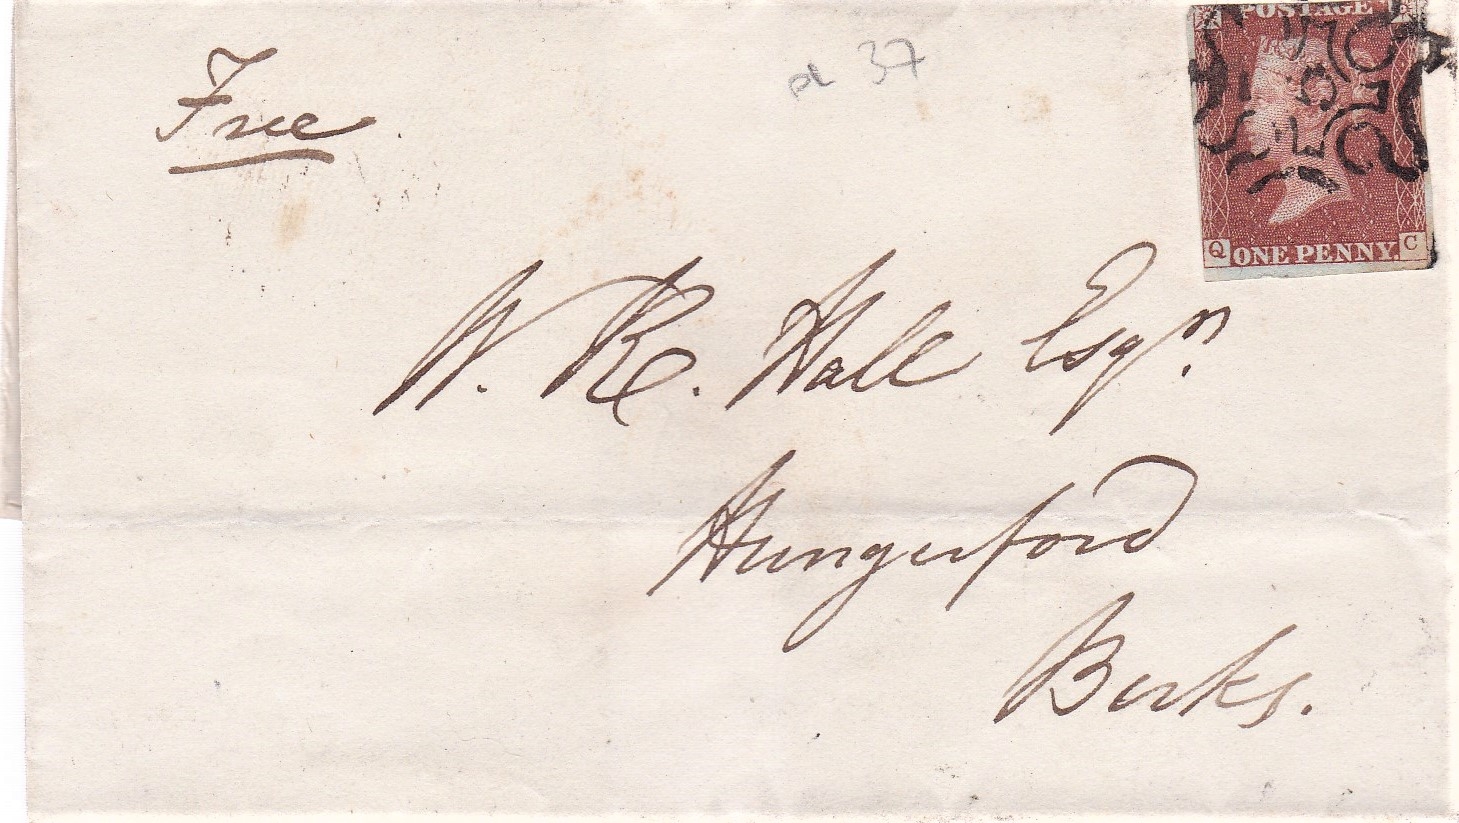 Free
pl 37
POSTAGE
Q ONE PENNY. C
W. R. Hall Esqre.
Hungerford
Berks.